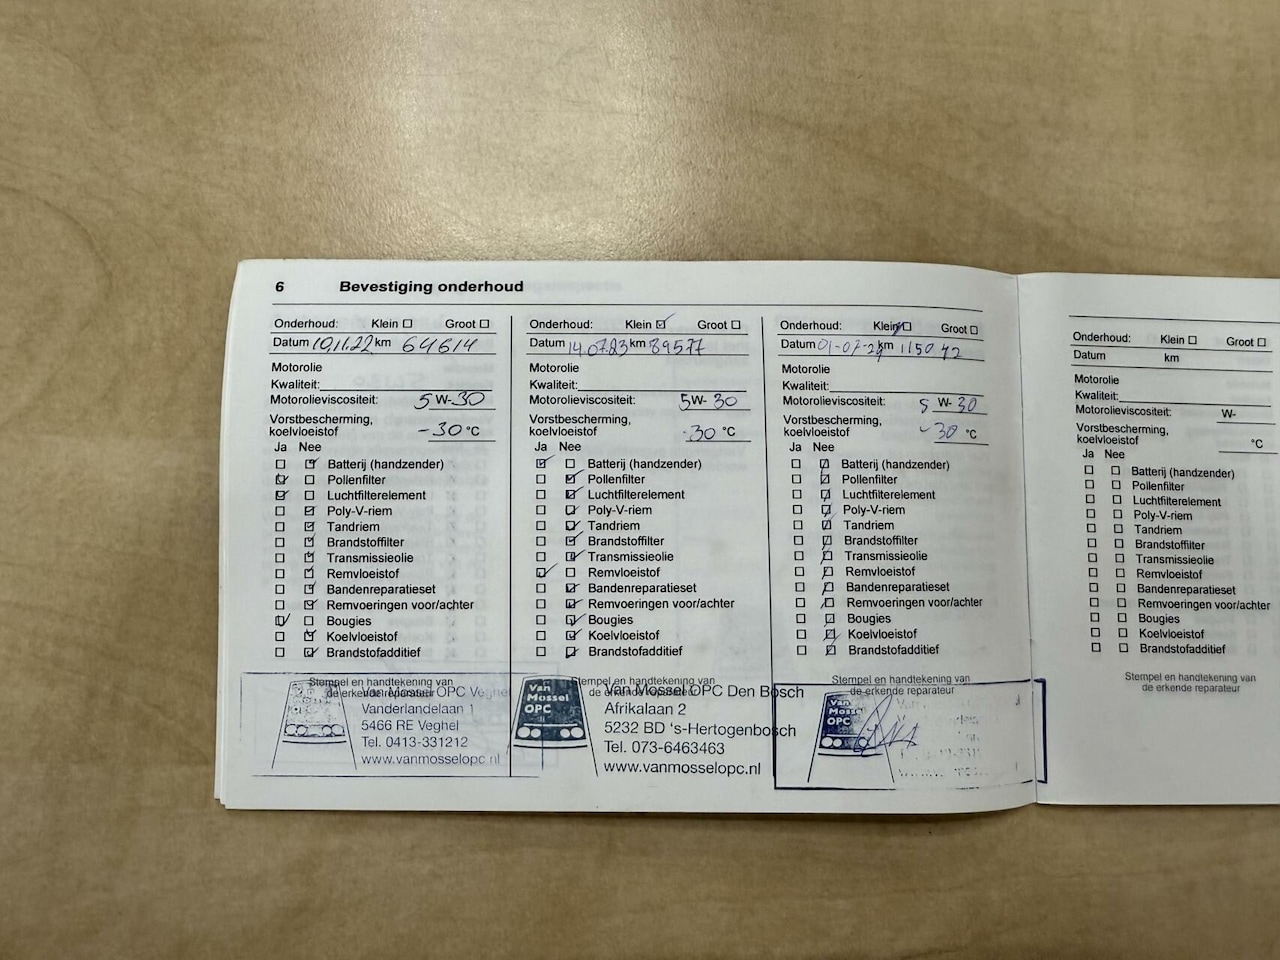 6 Bevestiging onderhoud
Onderhoud: Klein Groot
Datum 10.11.22 km 64614
Motorolie
Kwaliteit:
Motorolieviscositeit: 5 W-30
Vorstbescherming,
koelvloeistof -30 °C
Ja Nee
Batterij (handzender)
Pollenfilter
Luchtfilterelement
Poly-V-riem
Tandriem
Brandstoffilter
Transmissieolie
Remvloeistof
Bandenreparatieset
Remvoeringen voor/achter
Bougies
Koelvloeistof
Brandstofadditief
Stempel en handtekening van
de erkende reparateur
OPC Veghel
Vanderlandelaan 1
5466 RE Veghel
Tel. 0413-331212
www.vanmosselopc.nl
Onderhoud: Klein Groot
Datum 14.07.23 km 89577
Motorolie
Kwaliteit:
Motorolieviscositeit: 5W- 30
Vorstbescherming,
koelvloeistof -30 °C
Ja Nee
Batterij (handzender)
Pollenfilter
Luchtfilterelement
Poly-V-riem
Tandriem
Brandstoffilter
Transmissieolie
Remvloeistof
Bandenreparatieset
Remvoeringen voor/achter
Bougies
Koelvloeistof
Brandstofadditief
Stempel en handtekening van
de erkende reparateur
Van
Mossel
OPC
Van Mossel OPC Den Bosch
Afrikalaan 2
5232 BD 's-Hertogenbosch
Tel. 073-6463463
www.vanmosselopc.nl
Onderhoud: Klein Groot
Datum 01-07-24 km 115042
Motorolie
Kwaliteit:
Motorolieviscositeit: 5 W- 30
Vorstbescherming,
koelvloeistof -30 °C
Ja Nee
Batterij (handzender)
Pollenfilter
Luchtfilterelement
Poly-V-riem
Tandriem
Brandstoffilter
Transmissieolie
Remvloeistof
Bandenreparatieset
Remvoeringen voor/achter
Bougies
Koelvloeistof
Brandstofadditief
Stempel en handtekening van
de erkende reparateur
Van
Mossel
OPC
Onderhoud: Klein Groot
Datum km
Motorolie
Kwaliteit:
Motorolieviscositeit: W-
Vorstbescherming,
koelvloeistof °C
Ja Nee
Batterij (handzender)
Pollenfilter
Luchtfilterelement
Poly-V-riem
Tandriem
Brandstoffilter
Transmissieolie
Remvloeistof
Bandenreparatieset
Remvoeringen voor/achter
Bougies
Koelvloeistof
Brandstofadditief
Stempel en handtekening van
de erkende reparateur